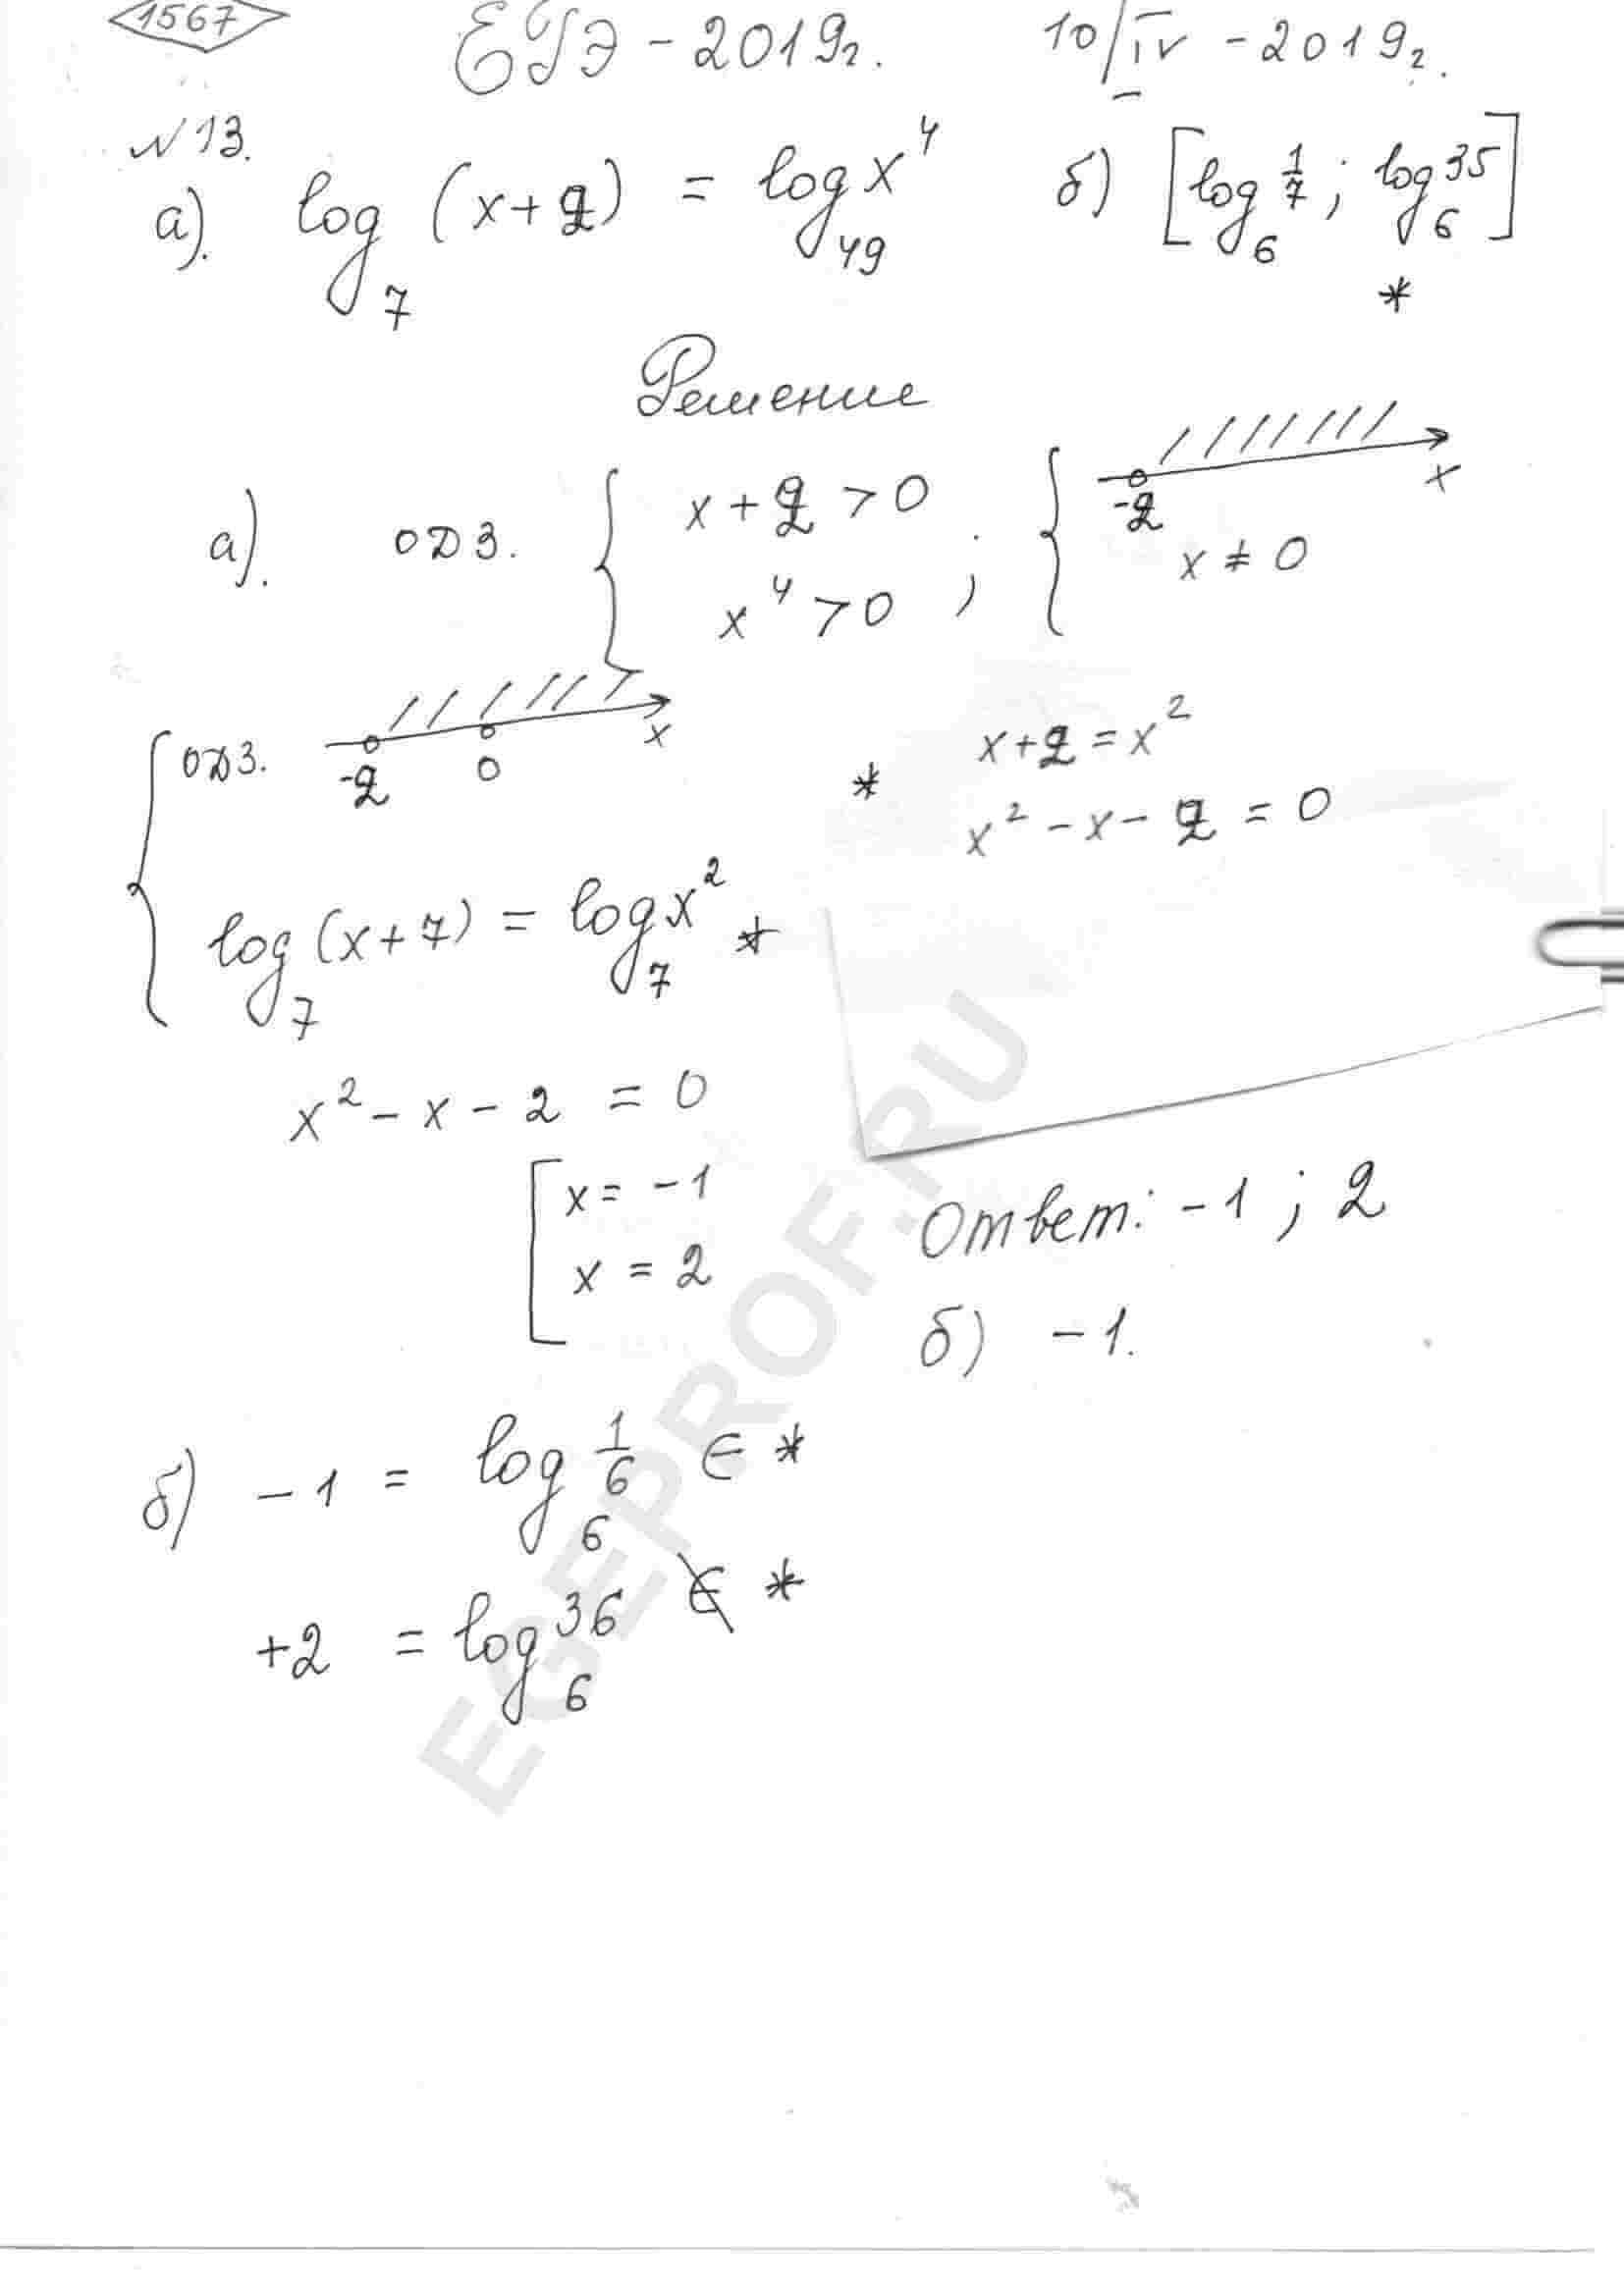 1567 ЕГЭ - 2019г. 10/IV - 2019г.
№13.
а). log₇ (x+2) = log₄₉ x⁴ б) [log₆ 1/7 ; log₆ 35] *
Решение
а). ОДЗ. { x + 2 > 0 ; { -2 x
x⁴ > 0 x ≠ 0
{ ОДЗ. -2 0 x * x+2 = x²
x² - x - 2 = 0
log₇ (x+7) = log₇ x² *
x² - x - 2 = 0
[ x = -1
x = 2
Ответ: -1 ; 2
б) -1.
б) -1 = log₆ 1/6 ∈ *
+2 = log₆ 36 ∉ *
EGEPROF.RU